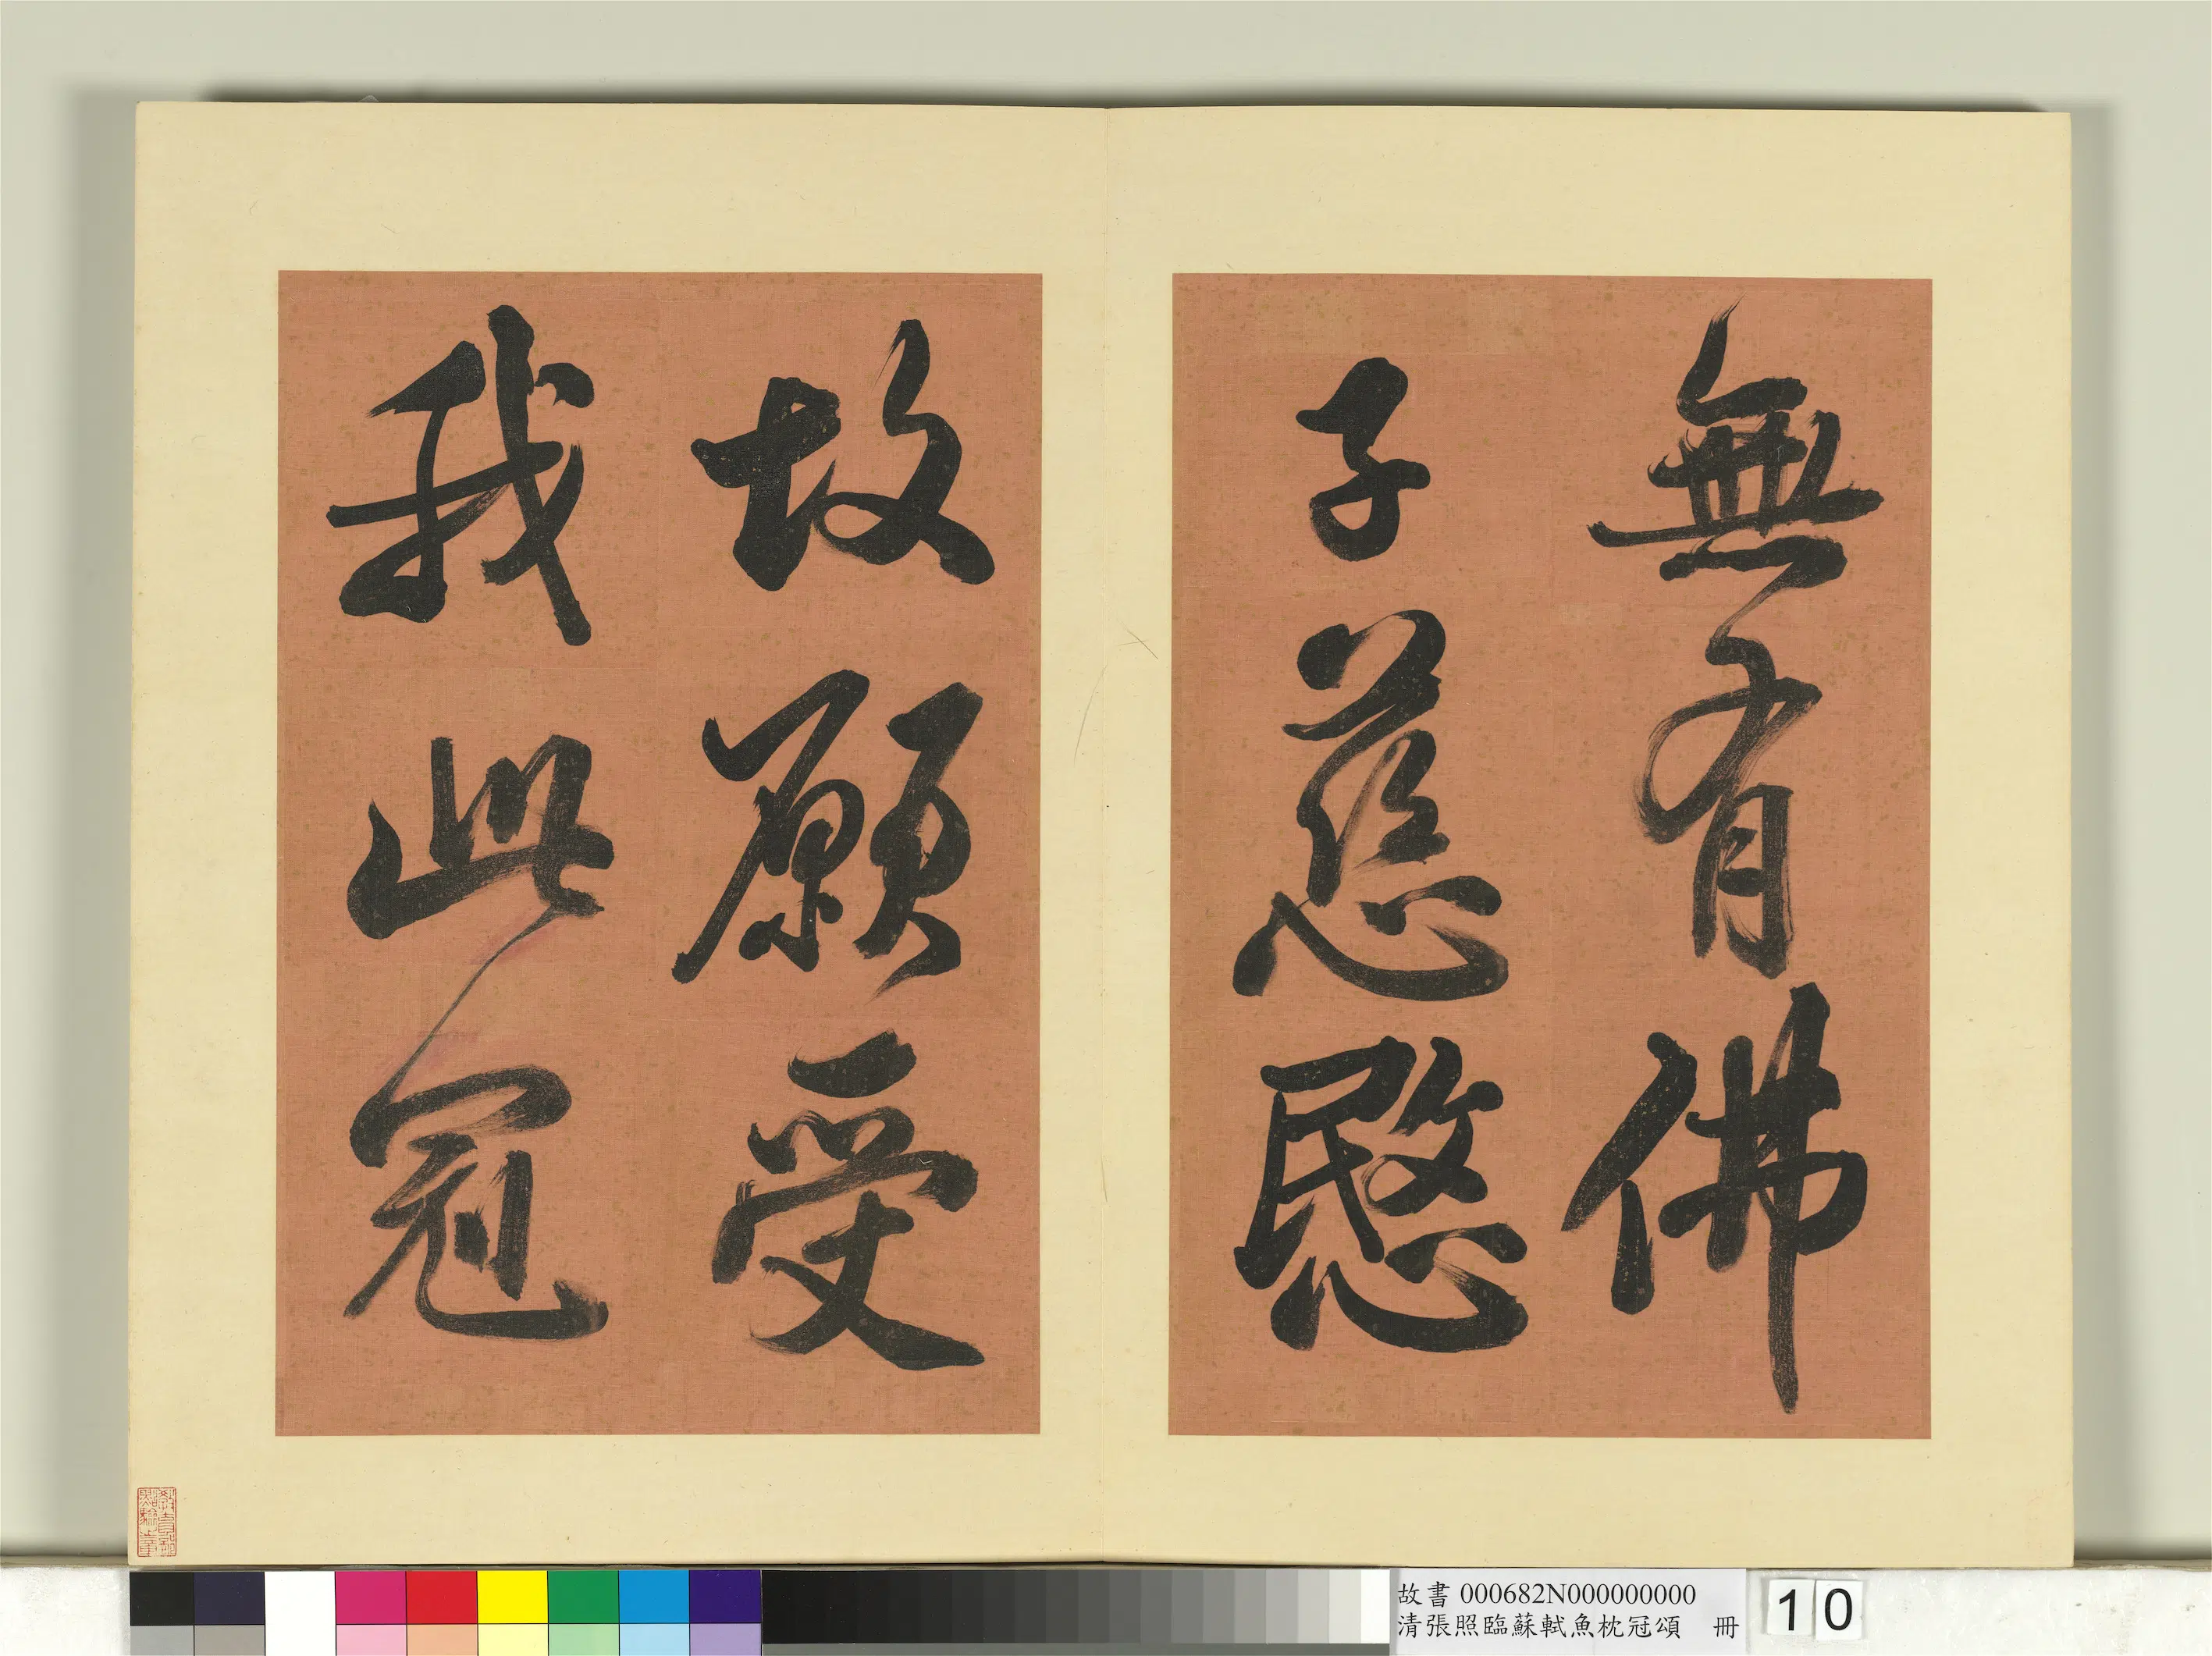 無有佛
子慈愍
故願受
我此冠
故書 000682N000000000
清張照臨蘇軾魚枕冠頌 冊
10